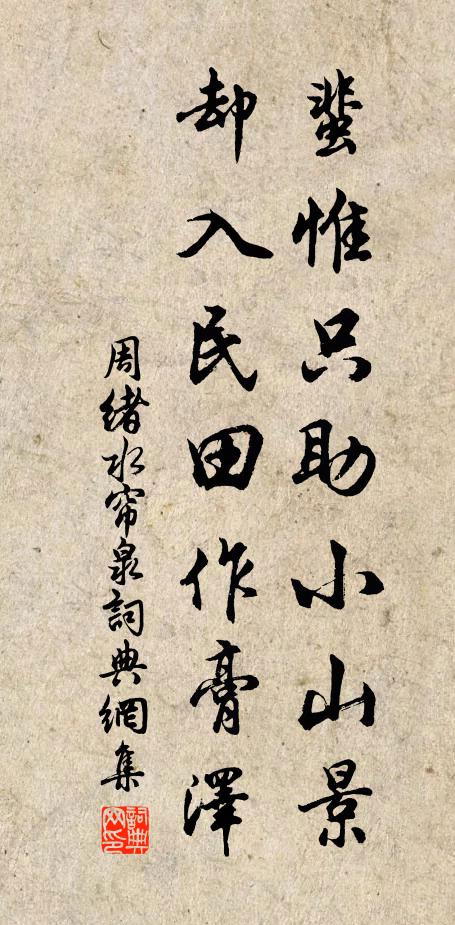 蜚惟只助小山景
却入民田作膏澤
周緒水帘泉詞典網集
詞典网印